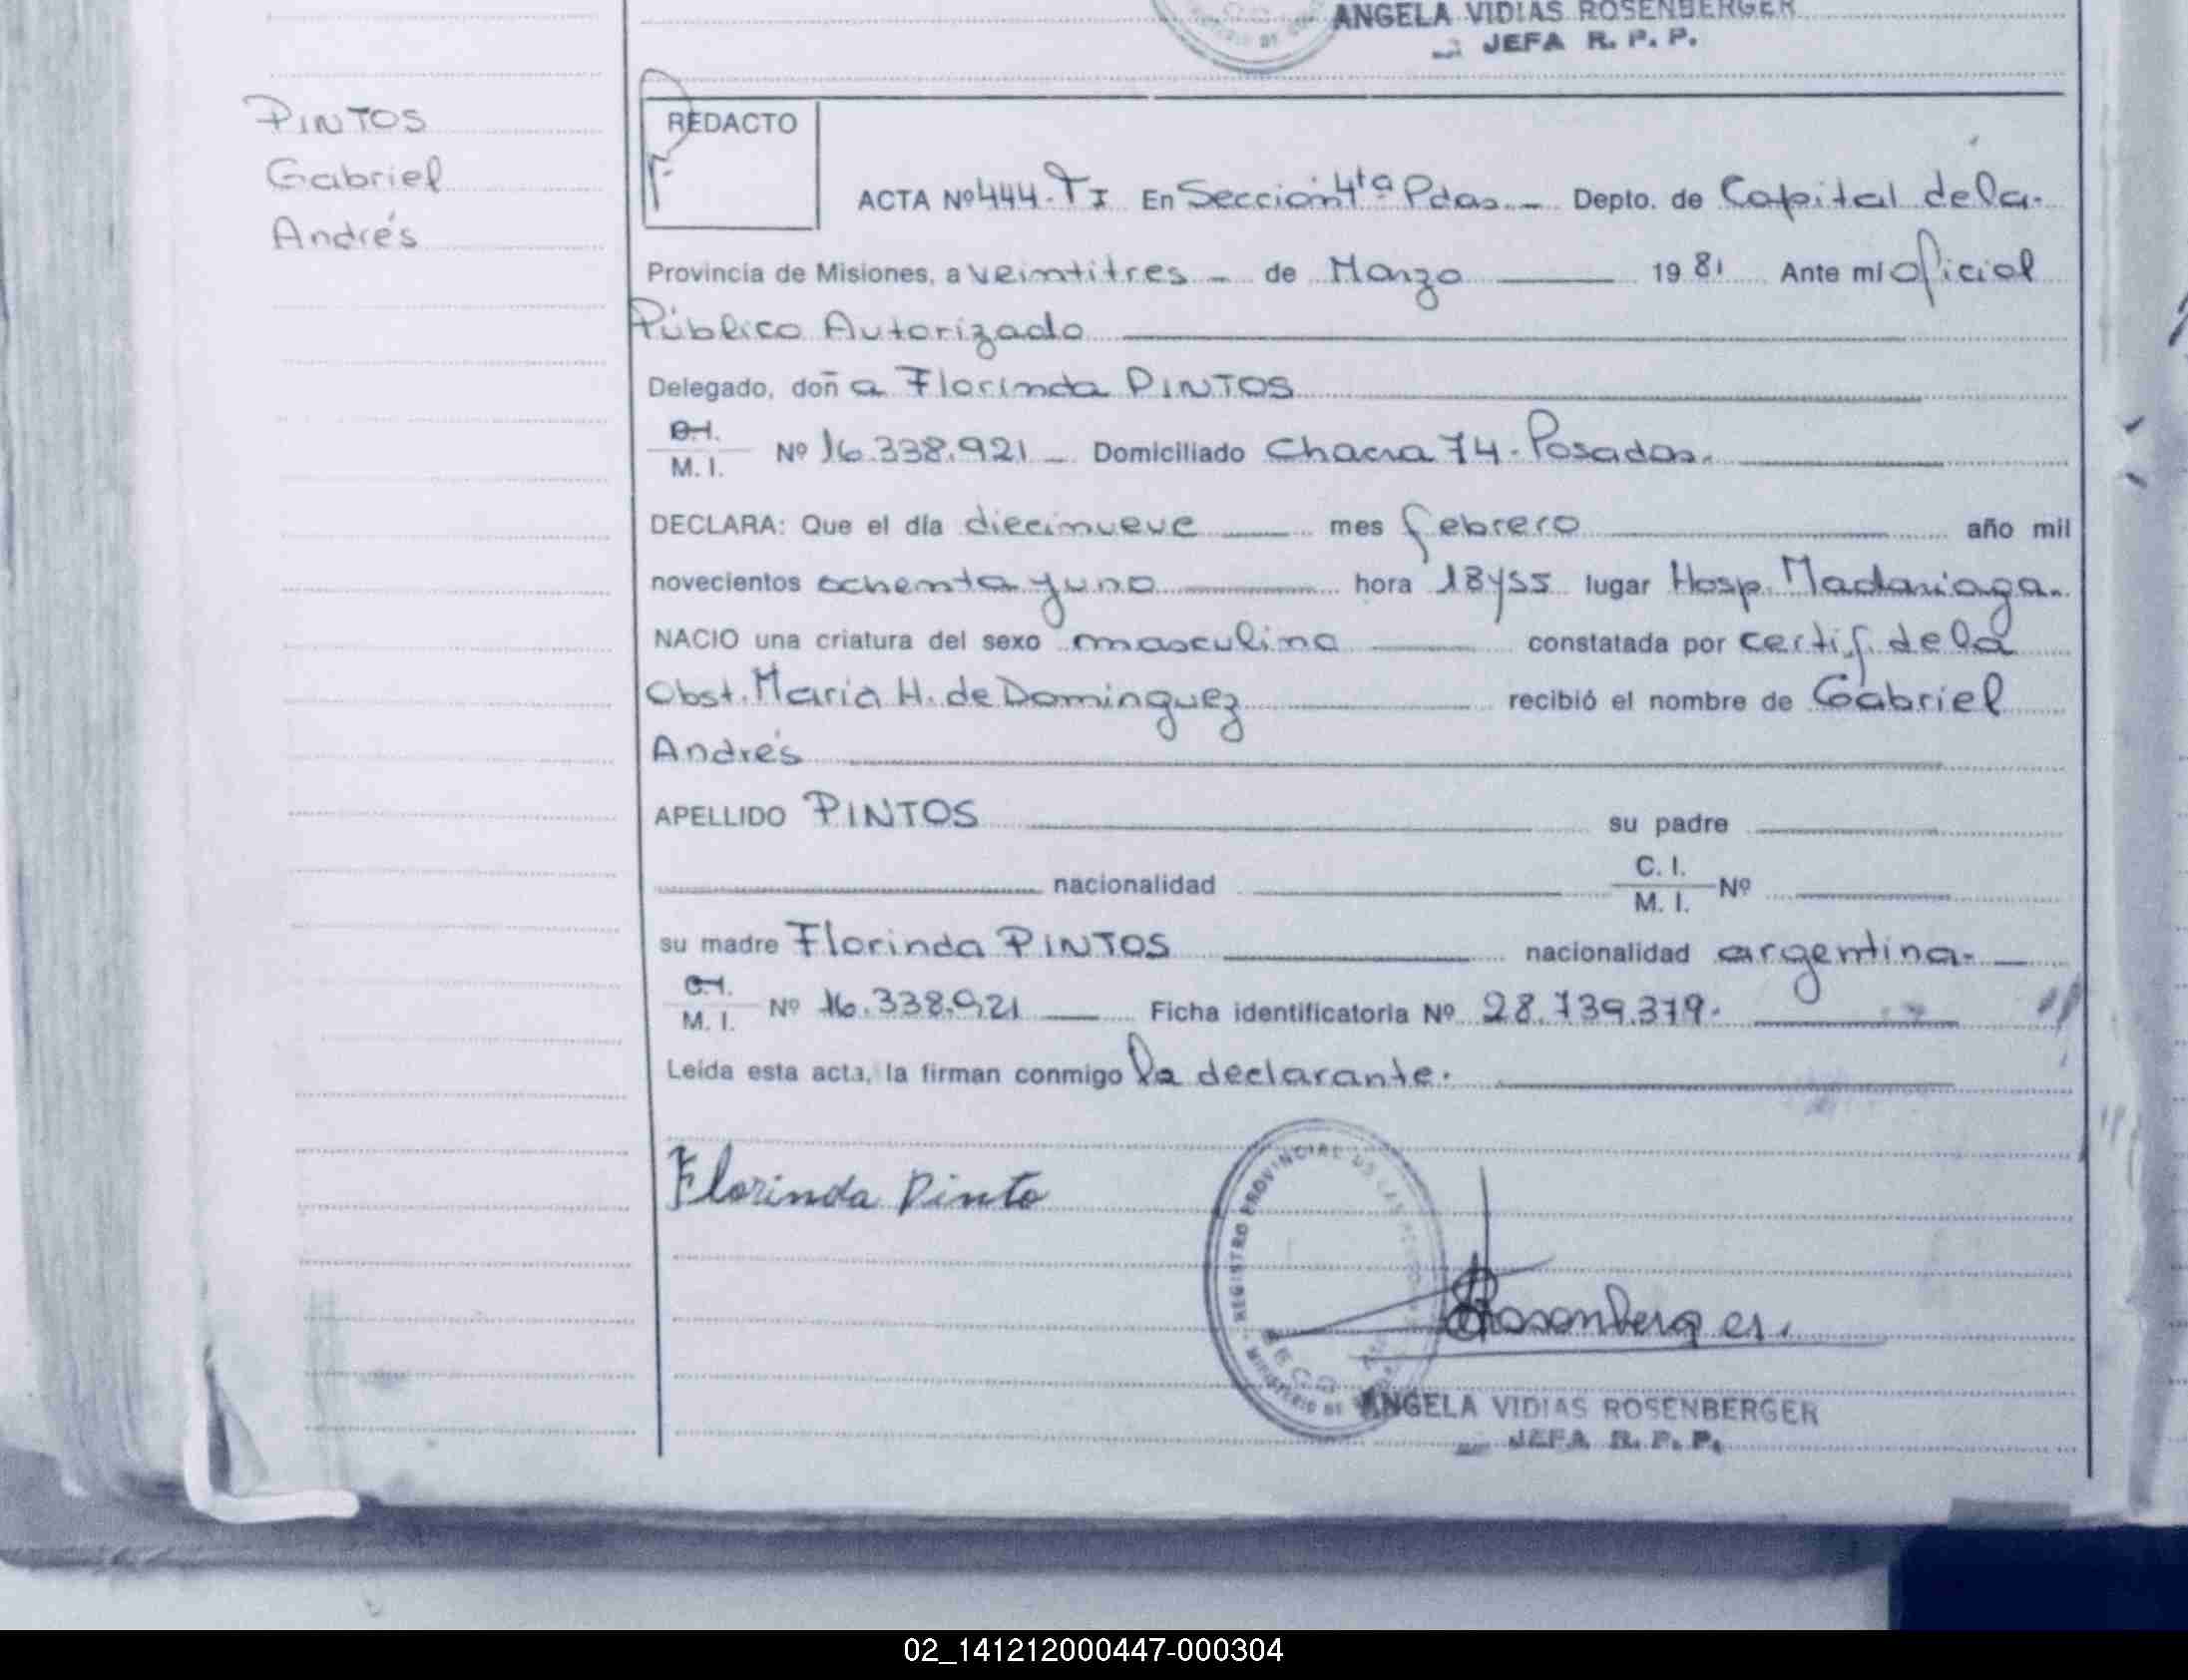 ANGELA VIDIAS ROSENBERGER
JEFA R. P. P.
PINTOS
Gabriel
Andrés
REDACTO
ACTA Nº 444-T I En Sección 4ta Pdas. - Depto. de Capital de la
Provincia de Misiones, a veintitres - de Marzo 1981 Ante mi Oficial
Público Autorizado
Delegado, doña Florinda PINTOS
C.I.
M. I. Nº 16.338.921 - Domiciliado Chacra 74 - Posadas.
DECLARA: Que el día diecinueve mes febrero año mil
novecientos ochenta y uno hora 18 y 55 lugar Hosp. Madariaga.
NACIO una criatura del sexo masculino constatada por certif. de la
Obst. Maria H. de Dominguez recibió el nombre de Gabriel
Andrés
APELLIDO PINTOS su padre
nacionalidad C. I. Nº
M. I.
su madre Florinda PINTOS nacionalidad argentina.
C.I.
M. I. Nº 16.338.921 Ficha identificatoria Nº 28.739.379.
Leída esta acta, la firman conmigo la declarante.
Florinda Pinto
REGISTRO PROVINCIAL DE LAS PERSONAS
MINISTERIO DE
Rosenberger.
ANGELA VIDIAS ROSENBERGER
JEFA R. P. P.
02_141212000447-000304